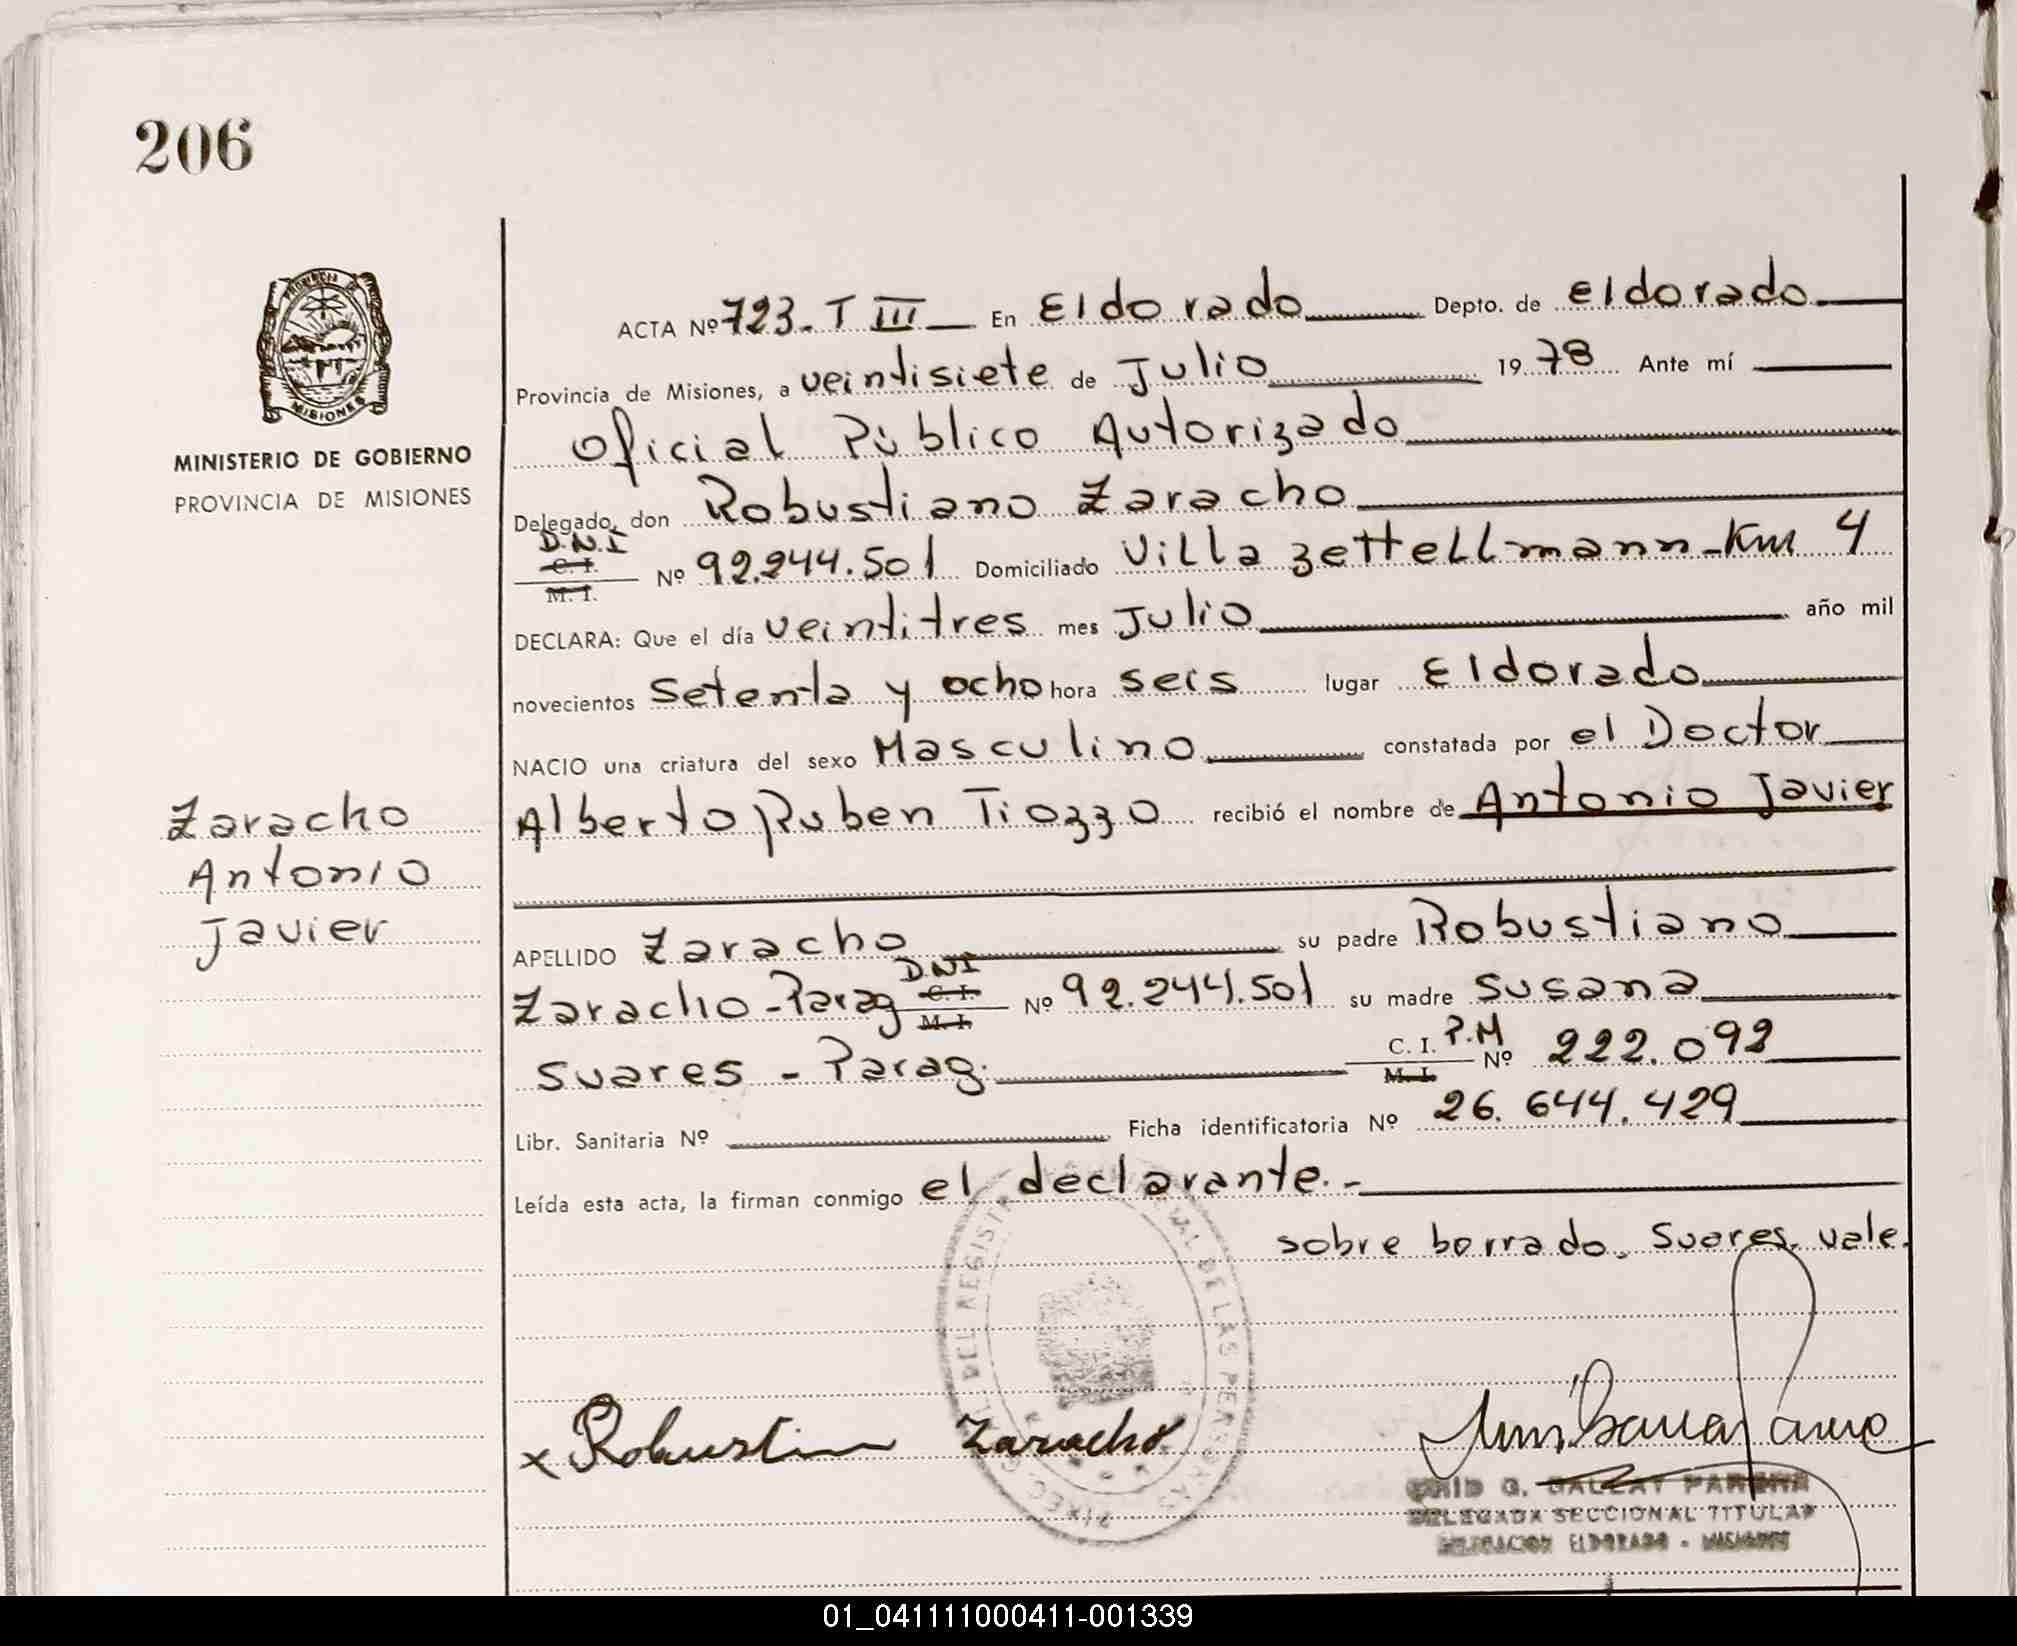 206
MISIONES
MINISTERIO DE GOBIERNO
PROVINCIA DE MISIONES
Zaracho
Antonio
Javier
ACTA Nº 723. T III En Eldorado Depto. de eldorado
Provincia de Misiones, a veintisiete de Julio 1978 Ante mí
Oficial Público Autorizado
Delegado, don Robustiano Zaracho
D.N.I
C. I.
M. I. Nº 92.244.501 Domiciliado Villa zettellmann-Km 4
DECLARA: Que el día veintitres mes Julio año mil
novecientos setenta y ocho hora seis lugar Eldorado
NACIO una criatura del sexo Masculino constatada por el Doctor
Alberto Ruben Tiozzo recibió el nombre de Antonio Javier
APELLIDO Zaracho su padre Robustiano
Zaracho-Parag D.N.I C. I. M. I. Nº 92.244.501 su madre Susana
Suares - Parag. C. I. P.M M. I. Nº 222.092
Libr. Sanitaria Nº Ficha identificatoria Nº 26.644.429
Leída esta acta, la firman conmigo el declarante.-
sobre borrado. Suares. vale.
x Robustiano Zaracho
DELEGADA SECCIONAL TITULAR
DELEGACION ELDORADO - MISIONES
01_041111000411-001339